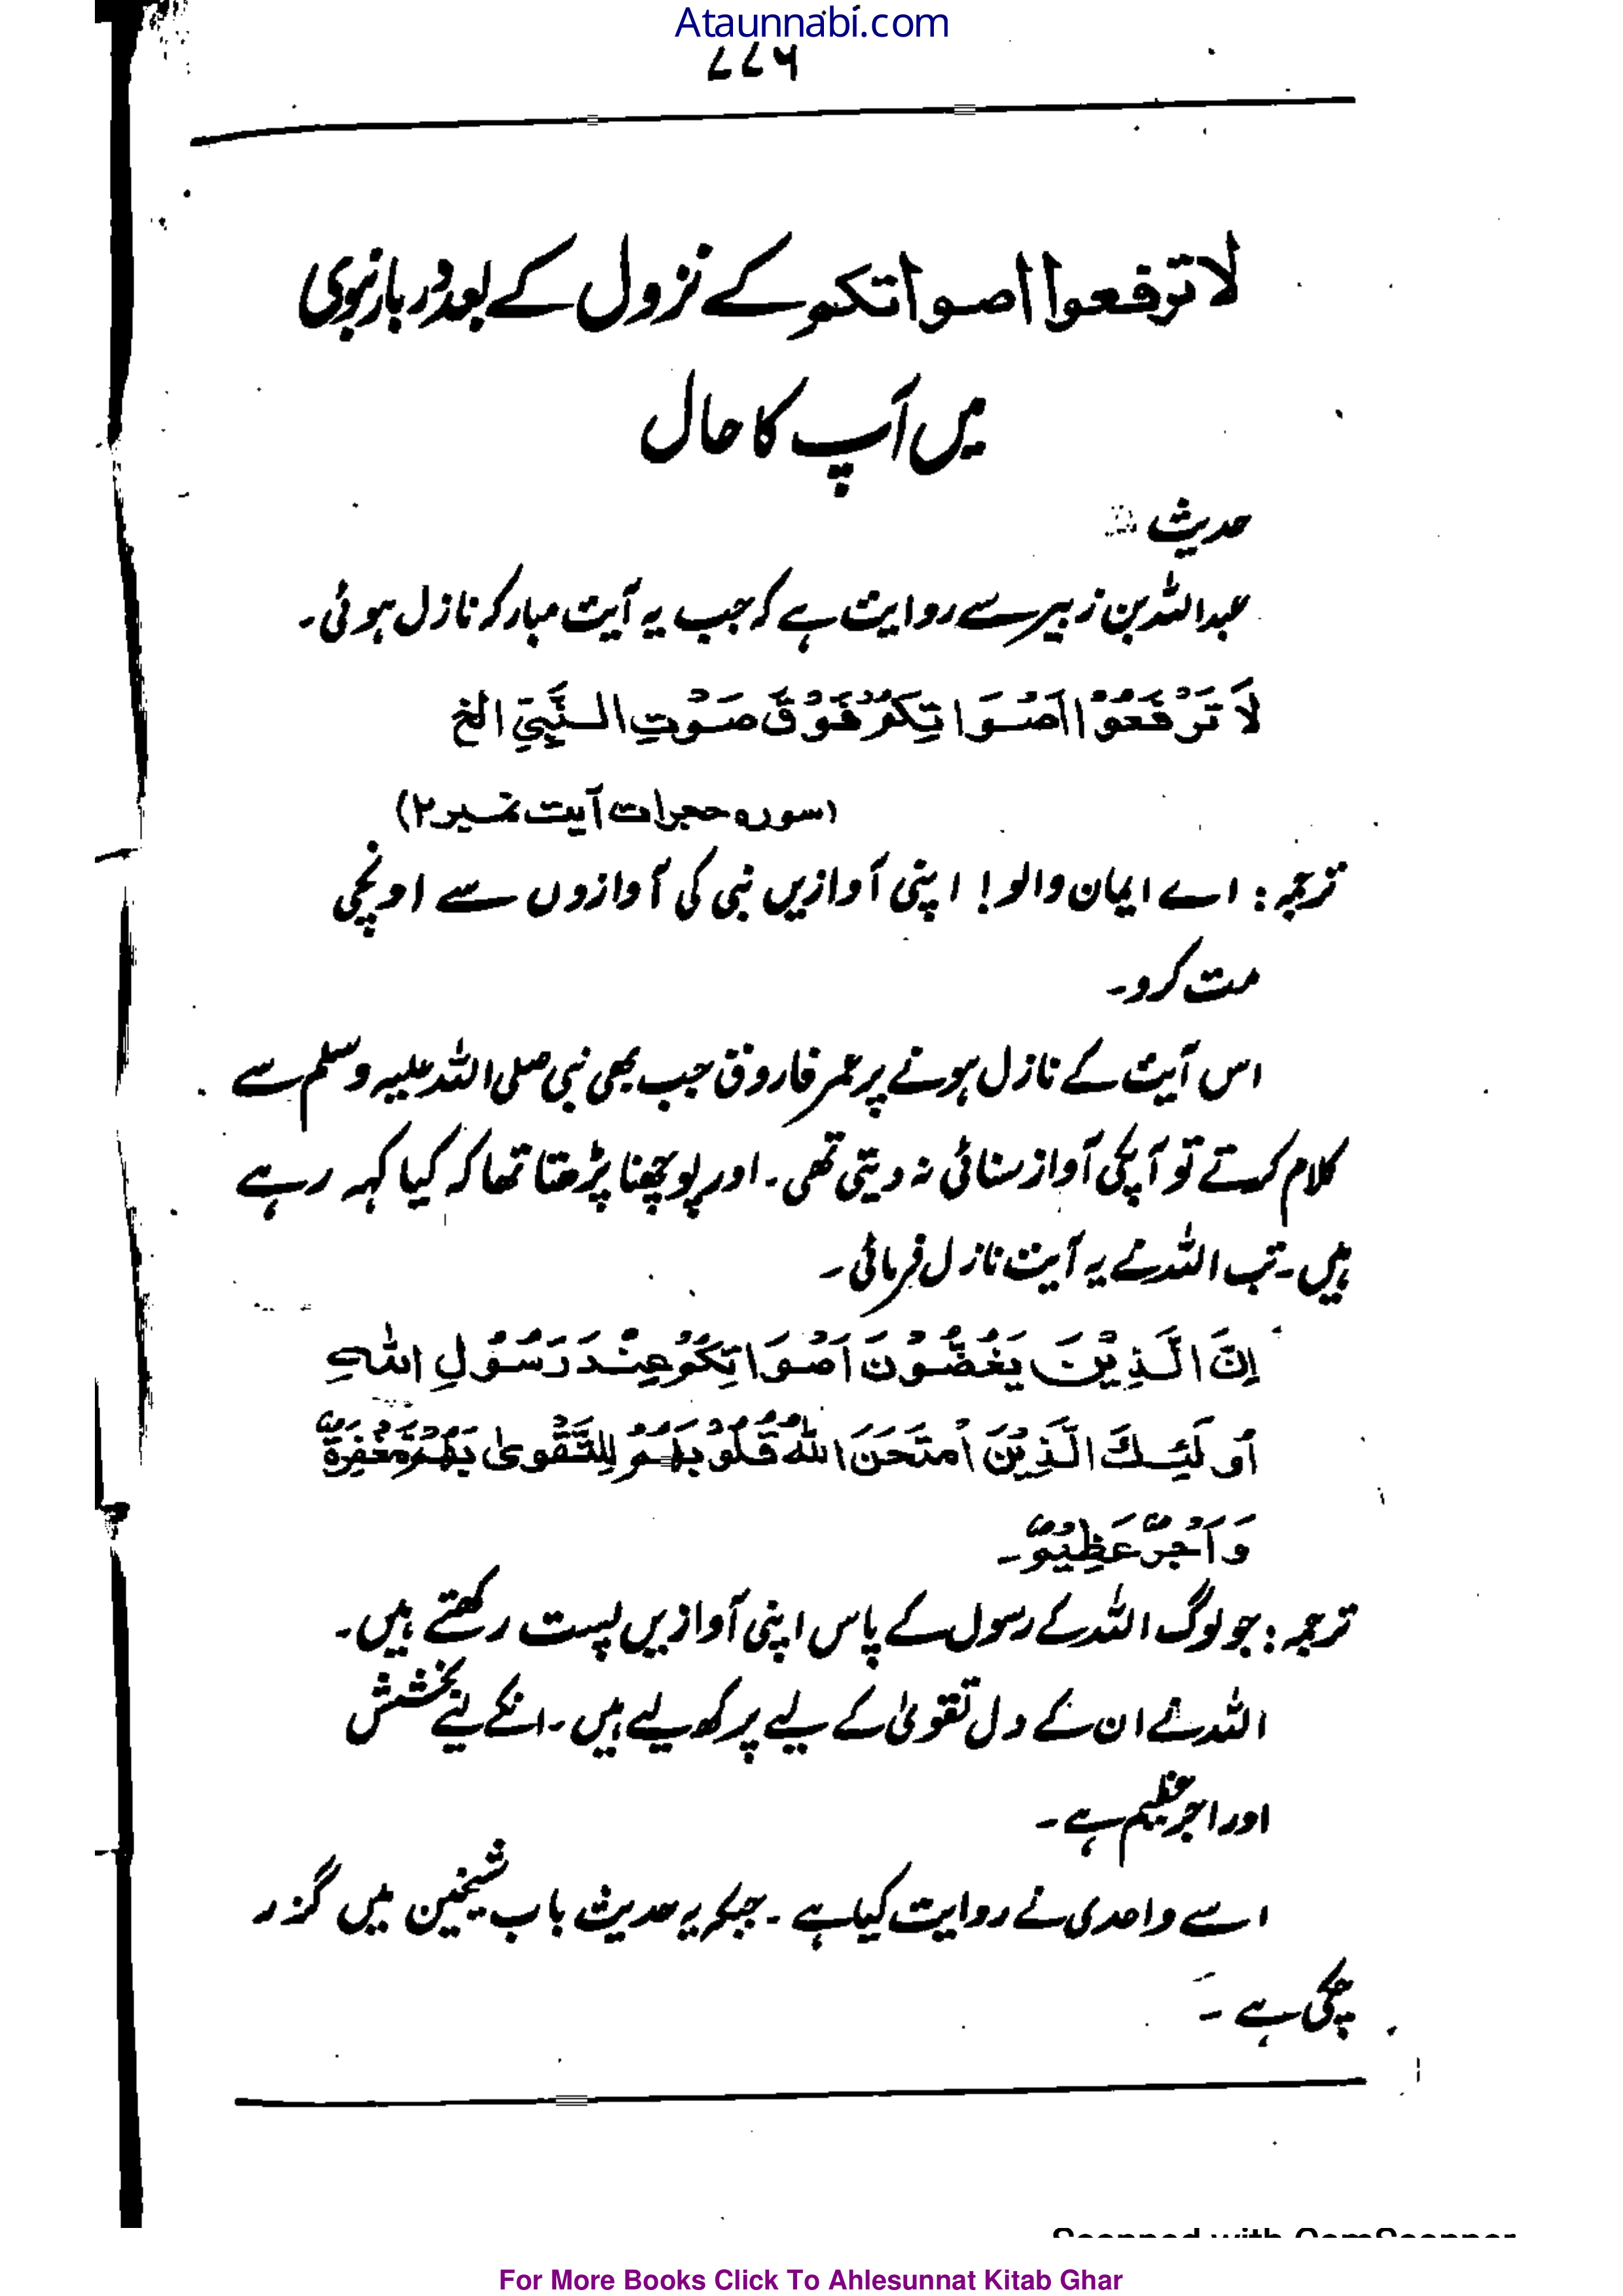 Ataunnabi.com
۷۷۶
لا ترفعوا اصواتکم کے نزول کے بعد دربار نبوی
میں آپ کا حال
حدیث
عبداللہ بن زبیر سے روایت ہے کہ جب یہ آیت مبارکہ نازل ہوئی۔
لَا تَرْفَعُوْا اَصْوَاتِكُمْ فَوْقَ صَوْتِ النَّبِيِّ الخ
(سورہ حجرات آیت نمبر ۲)
ترجمہ: اے ایمان والو! اپنی آوازیں نبی کی آوازوں سے اونچی
مت کرو۔
اس آیت کے نازل ہونے پر عمر فاروق جب بھی نبی صلی اللہ علیہ وسلم سے
کلام کرتے تو آپکی آواز سنائی نہ دیتی تھی۔ اور پوچھنا پڑھتا تھا کہ کیا کہہ رہے
ہیں۔ تب اللہ نے یہ آیت نازل فرمائی۔
اِنَّ الَّذِيْنَ يَغُضُّوْنَ اَصْوَاتِكُمْ عِنْدَ رَسُوْلِ اللهِ
اُولَئِكَ الَّذِيْنَ امْتَحَنَ اللهُ قُلُوْبَهُمْ لِلتَّقْوىٰ بَهُمْ مَغْفِرَةٌ
وَاَجْرٌ عَظِيْمٌ۔
ترجمہ: جو لوگ اللہ کے رسول کے پاس اپنی آوازیں پست رکھتے ہیں۔
اللہ نے ان کے دل تقویٰ کے لیے پرکھ لیے ہیں۔ انکے لیے بخشش
اور اجر عظیم ہے۔
اسے واحدی نے روایت کیا ہے۔ جبکہ یہ حدیث باب شیخین میں گزر
چکی ہے۔
Scanned with CamScanner
For More Books Click To Ahlesunnat Kitab Ghar